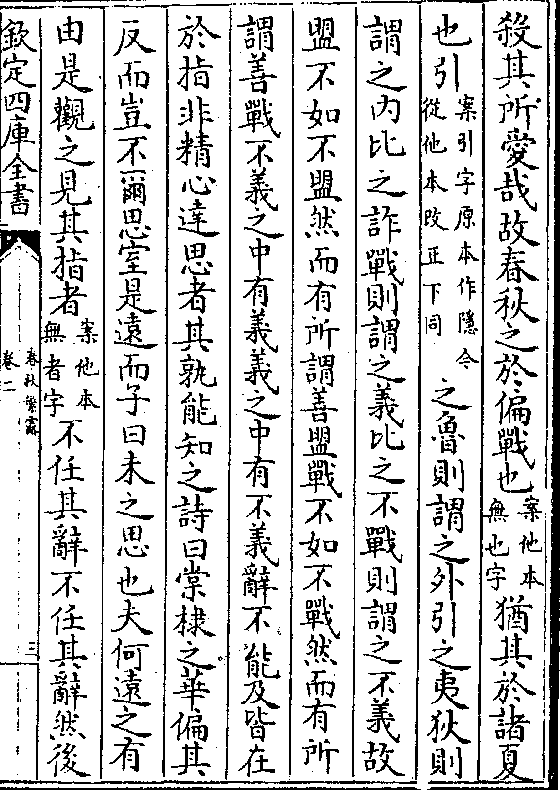 殺其所愛哉故春秋之於偏戰也案他本無也字猶其於諸夏
也引案引字原本作隱今從他本改正下同之魯則謂之外引之夷狄則
謂之内比之詐戰則謂之義比之不戰則謂之不義故
盟不如不盟然而有所謂善盟戰不如不戰然而有所
謂善戰不義之中有義義之中有不義辭不能及皆在
於指非精心達思者其孰能知之詩曰棠棣之華偏其
反而豈不爾思室是遠而子曰未之思也夫何遠之有
由是觀之見其指者案他本無者字不任其辭不任其辭然後
欽定四庫全書
春秋繁露
卷二
三